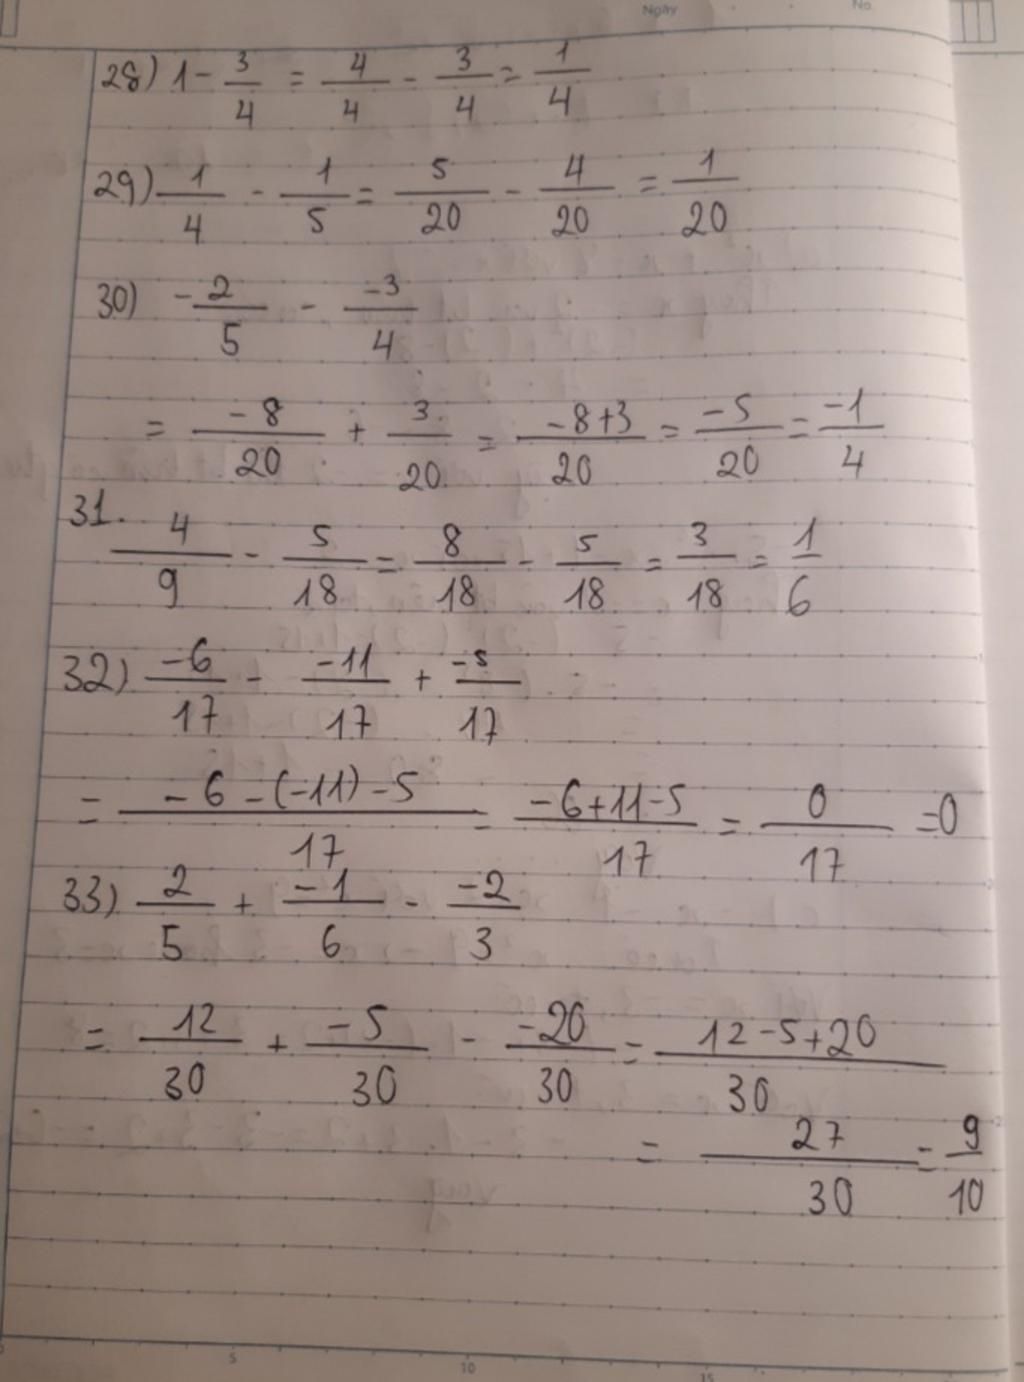 Ngày No.
28) 1 - 3/4 = 4/4 - 3/4 = 1/4
29) 1/4 - 1/5 = 5/20 - 4/20 = 1/20
30) -2/5 - -3/4
= -8/20 + 3/20 = -8+3/20 = -5/20 = -1/4
31. 4/9 - 5/18 = 8/18 - 5/18 = 3/18 = 1/6
32) -6/17 - -11/17 + -5/17
= -6-(-11)-5/17 = -6+11-5/17 = 0/17 = 0
33) 2/5 + -1/6 - -2/3
= 12/30 + -5/30 - -20/30 = 12-5+20/30
= 27/30 = 9/10
5 10 15